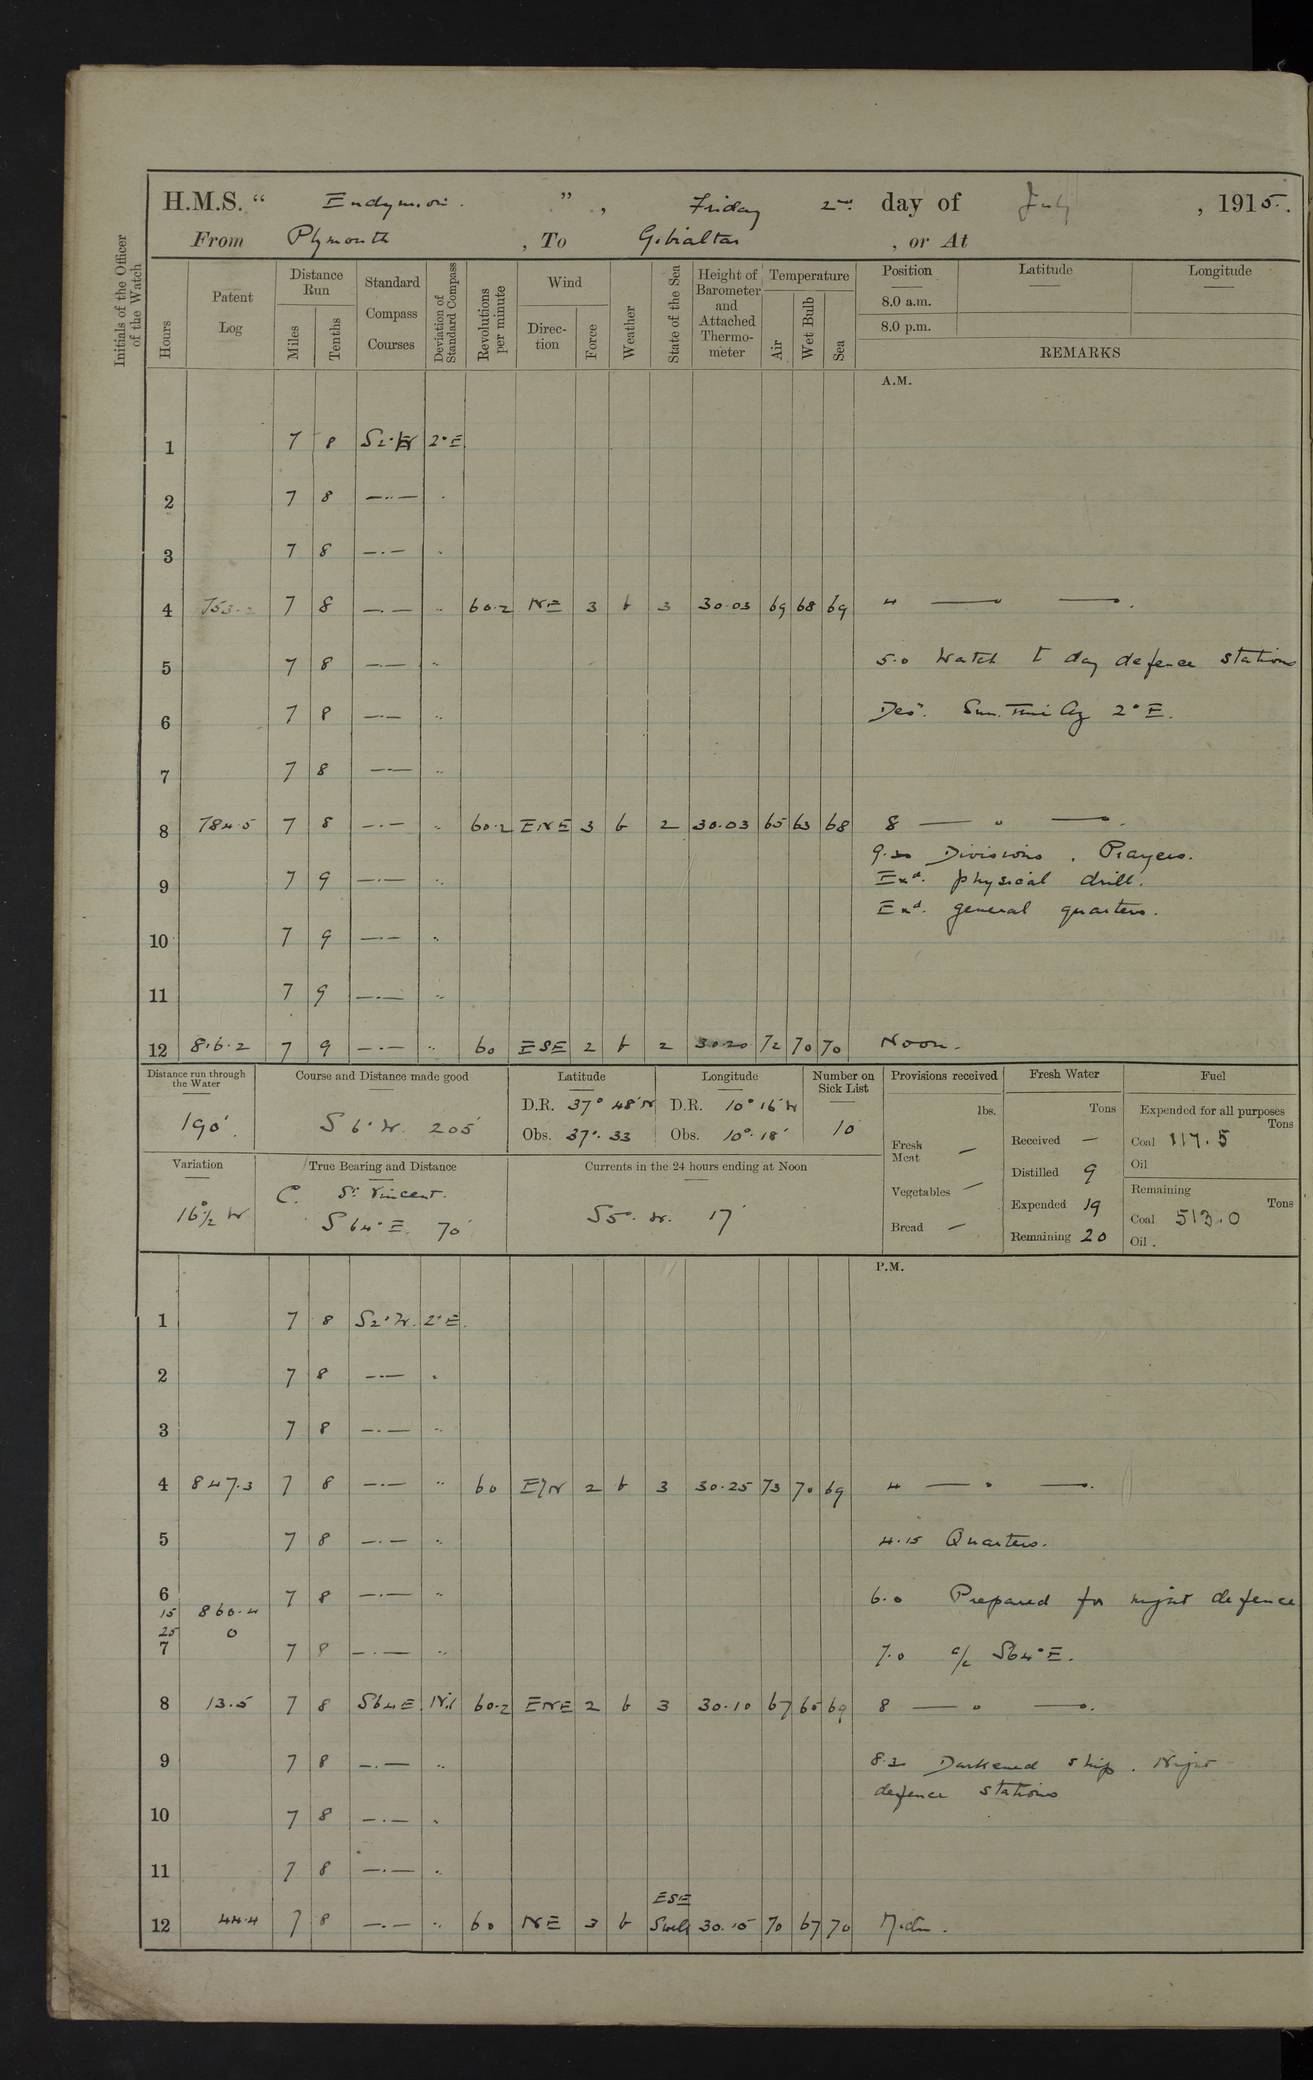 H.M.S. “ Endymion. ” , Friday 2nd day of July , 1915.
From Plymouth , To Gibraltar , or At
Initials of the Officer of the Watch
Hours Patent Log Distance Run Miles Tenths Standard Compass Courses Deviation of Standard Compass Revolutions per minute Wind Direc-tion Force Weather State of the Sea Height of Barometer and Attached Thermo-meter Temperature Air Wet Bulb Sea Position Latitude Longitude
8.0 a.m.
8.0 p.m.
REMARKS
A.M.
1 7 8 S2°W 2°E
2 7 8 —..— .
3 7 8 —.— ..
4 753.2 7 8 —.— .. 60.2 NE 3 b 3 30.03 69 68 69 4 —— ——.
5 7 8 —.— .. 5.0 Watch to day defence stations
6 7 8 —.— .. Devn. Sun. Time Az 2°E.
7 7 8 —.— ..
8 784.5 7 8 —.— .. 60.2 ENE 3 b 2 30.03 65 63 68 8 —— " ——.
9.30 Divisions . Prayers.
9 7 9 —.— .. Exd. physical drill.
Exd. general quarters.
10 7 9 —.— ..
11 7 9 —.— ..
12 816.2 7 9 —.— .. 60 ESE 2 b 2 30.20 72 70 70 Noon.
Distance run through the Water Course and Distance made good Latitude Longitude Number on Sick List Provisions received Fresh Water Fuel
190'. S 6° W. 205' D.R. 37° 48' N D.R. 10° 16' W 10 lbs. Tons Expended for all purposes Tons
Obs. 37°. 33 Obs. 10°. 18' Fresh Meat — Received — Coal 117.5
Oil
Variation True Bearing and Distance Currents in the 24 hours ending at Noon Vegetables — Distilled 9 Remaining Tons
16½° W C. St Vincent. S5°. W. 17' Expended 19 Coal 513.0
S 64° E. 70' Bread — Remaining 20 Oil .
P.M.
1 7 8 S2°W. 2°E.
2 7 8 —.— .
3 7 8 —.— ..
4 847.3 7 8 —.— .. 60 E/N 2 b 3 30.25 73 70 69 4 —— " ——.
5 7 8 —.— .. 4.15 Quarters.
6 7 8 —.— .. 6.0 Prepared for night defence
15 860.4
25 0
7 7 8 —.— .. 7.0 a/c S64°E.
8 13.5 7 8 S64E Nil 60.2 ENE 2 b 3 30.10 67 65 69 8 —— " ——.
9 7 8 —.— .. 8.30 Darkened ship . Night
defence stations
10 7 8 —.— ..
11 7 8 —.— ..
12 44.4 7 8 —.— .. 60 NE 3 b ESE Swell 30.15 70 67 70 Midn.